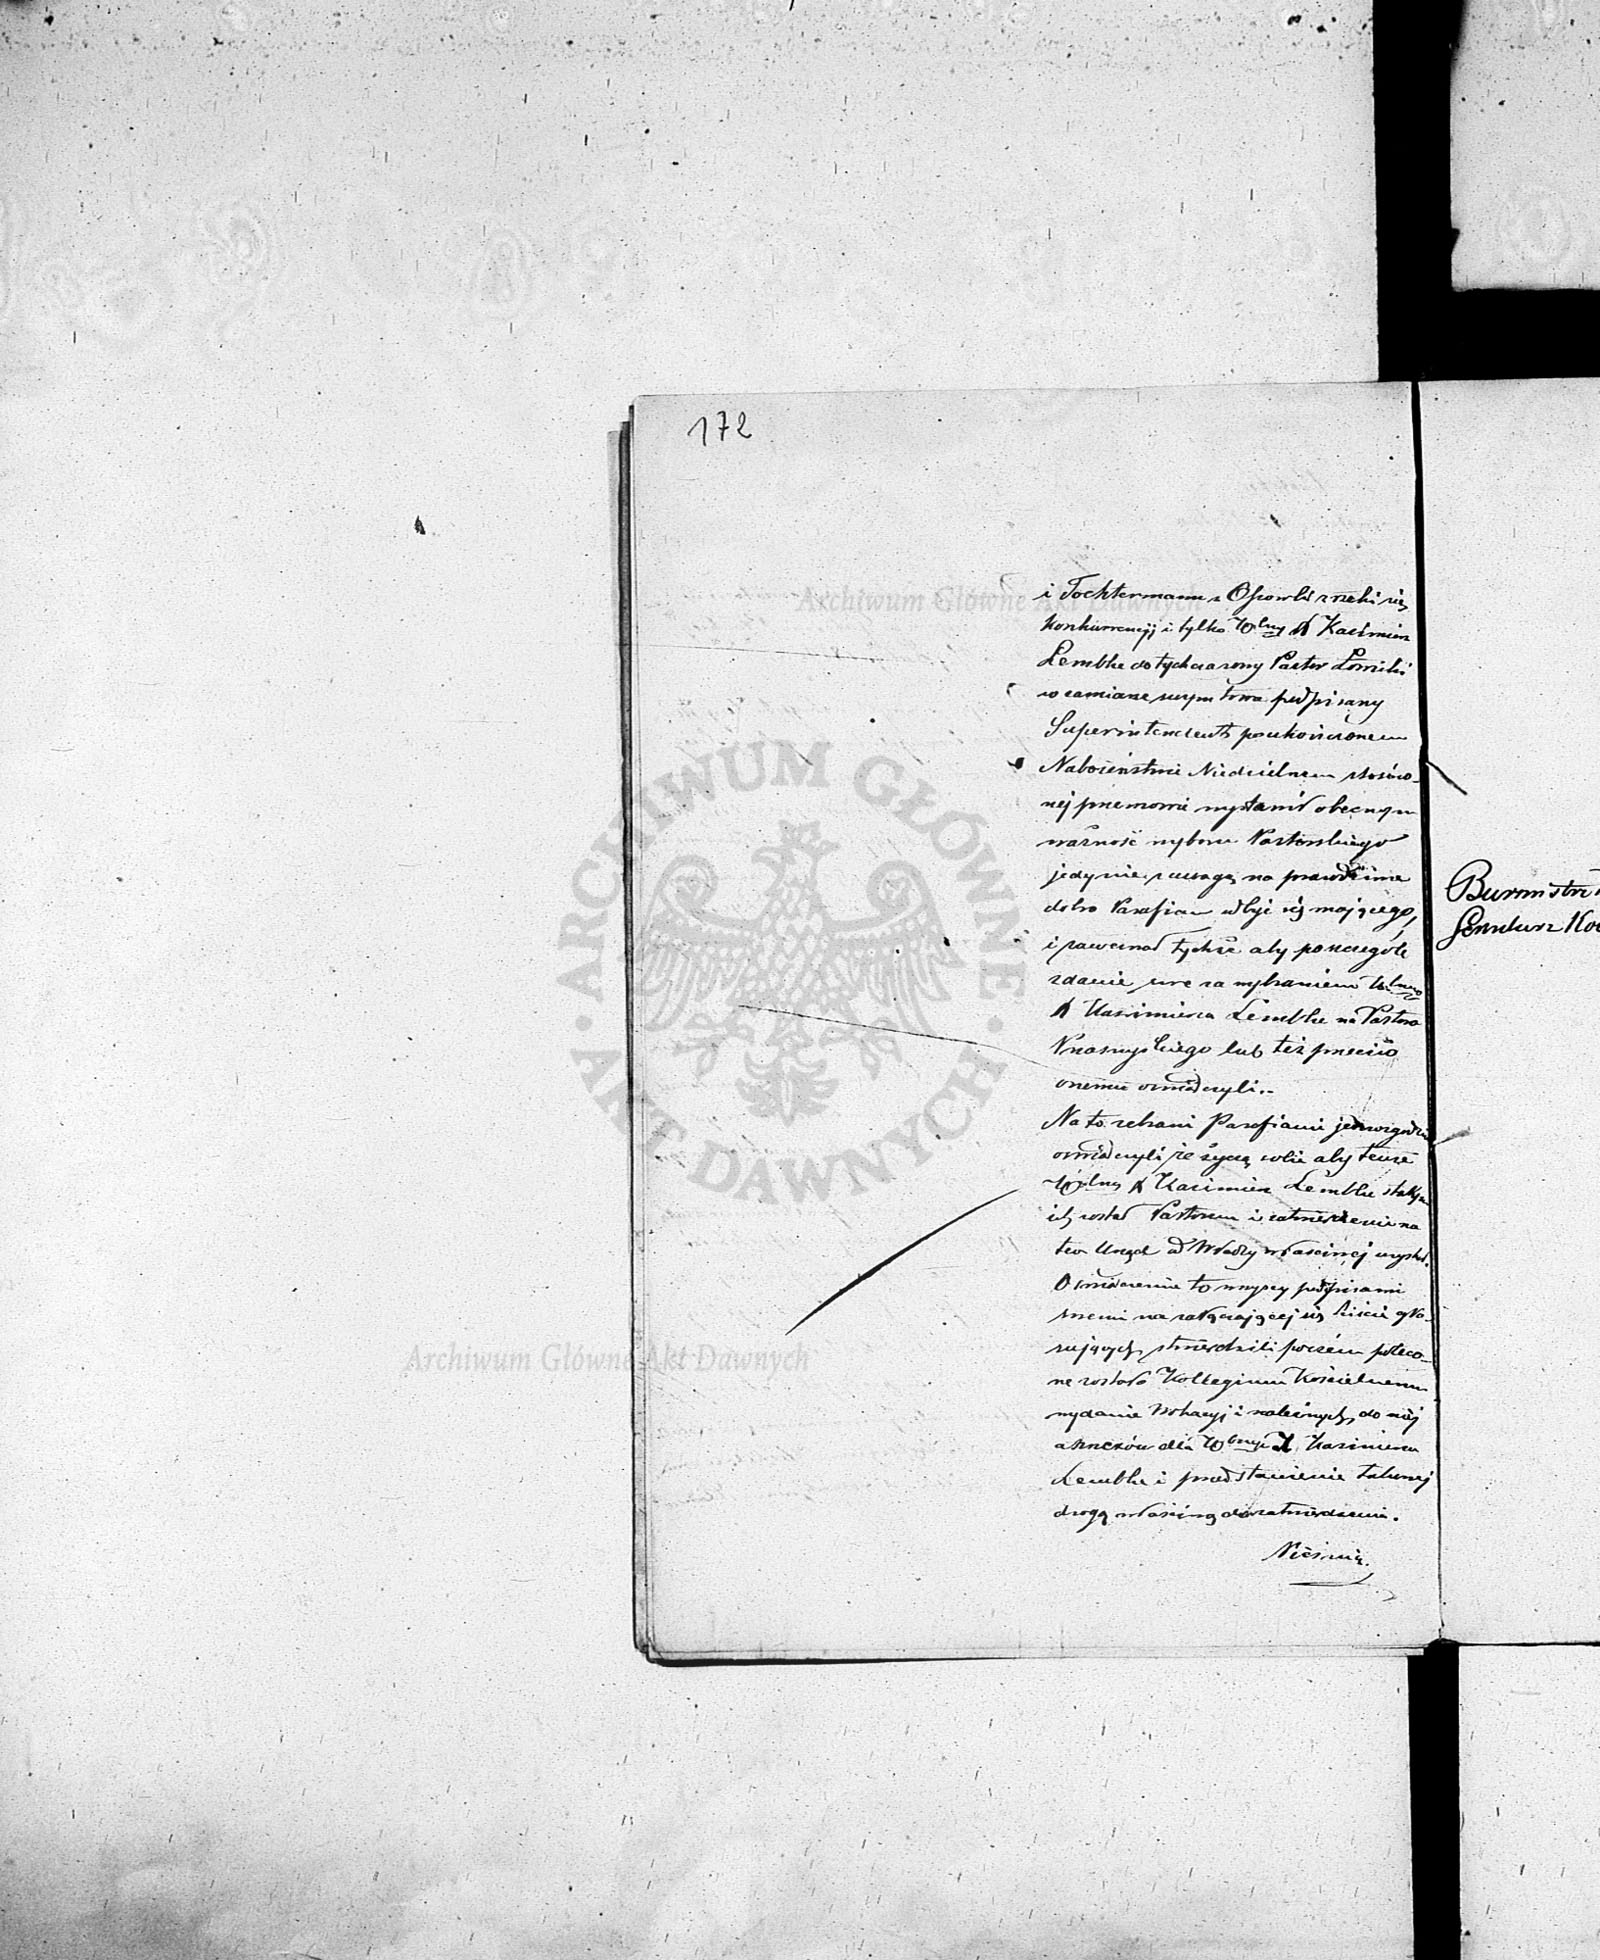 172
i Tochtermann z Osówki zrzekli się
konkurencyj i tylko Wielny X Kazimierz
Lembke dotychczasowy Pastor Łomżiń
w zamianę swym trwa podpisany
Superintendent po ukończonem
Nabożeństwie Niedzielnem stosów-
nej przemowie wystawił obecnym
ważność wyboru Pastorskiego
jedynie z uwagą na prawdziwe
dobro Parafian odbyć się mającego,
i zawezwał tychże aby poszczególe
zdanie swe za wybraniem Wielnego
X Kazimierza Lembke na Pastora
Przasnyskiego lub też przeciw
onemu oświadczyli.
Na to zebrani Parafianie jednozgodnie
oświadczyli że życzą sobie aby tenże
Wielny X Kazimierz Lembke stałym
ich został Pastorem i zatwierdzenie na
ten Urząd od Władzy właściwej uzyskał.
Oświadczenie to wszyscy podpisami
swemi na załączającej się liście gło-
sujących stwierdzili poczém poleco-
ne zostało Kollegium Kościelnemu
wydanie Wokacyi i należnych do niej
annexów dla Wielnego X Kazimierza
Lembke i przedstawienie takowej
drogą właściwą do zatwierdzenia.
Burmistrz
Archiwum Główne Akt Dawnych
ARCHIWUM GŁÓWNE
AKT DAWNYCH
Archiwum Główne Akt Dawnych